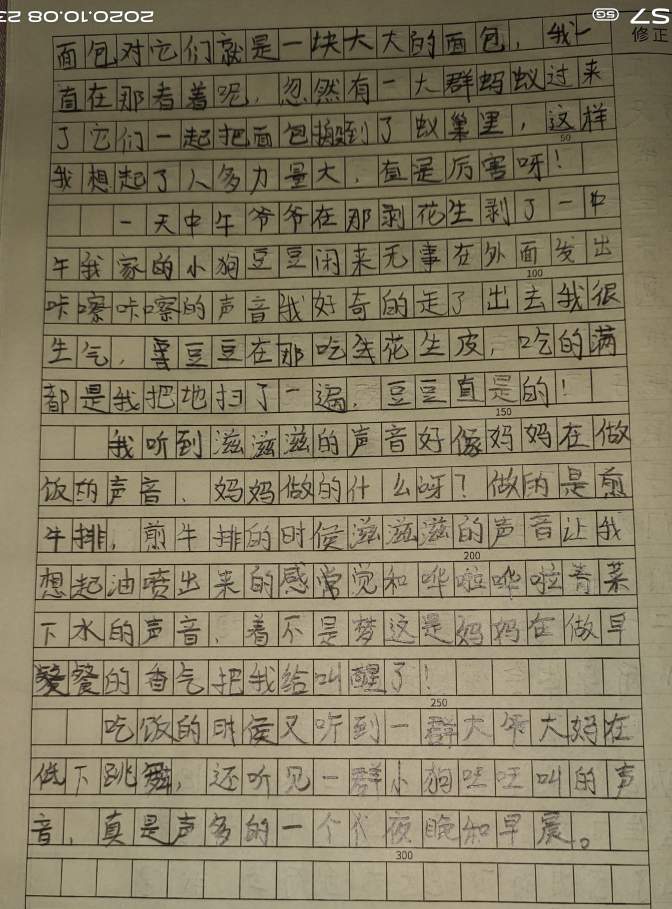 2020.10.08 23
5G
57S
修正
面包对它们就是一块大大的面包，我一
直在那看着呢，忽然有一大群蚂蚁过来
了它们一起把面包搬到了蚁巢里，这样
50
我想起了人多力量大，直是厉害呀！
一天中午爷爷在那剥花生剥了一中
午我家的小狗豆豆闲来无事在外面发出
100
咔嚓咔嚓的声音我好奇的走了出去我很
生气，豆豆在那吃生花生皮，吃的满
都是我把地扫了一遍，豆豆直是的！
150
我听到滋滋滋的声音好像妈妈在做
饭的声音，妈妈做的什么呀？做的是煎
牛排，煎牛排的时侯滋滋滋的声音让我
200
想起油喷出来的感觉和哗啦哗啦青菜
下水的声音，着不是梦这是妈妈在做早
餐的香气把我给叫醒了！
250
吃饭的时侯又听到一群大爷大妈在
低下跳舞，还听见一群小狗汪汪叫的声
音，真是声多的一个夜晚和早晨。
300